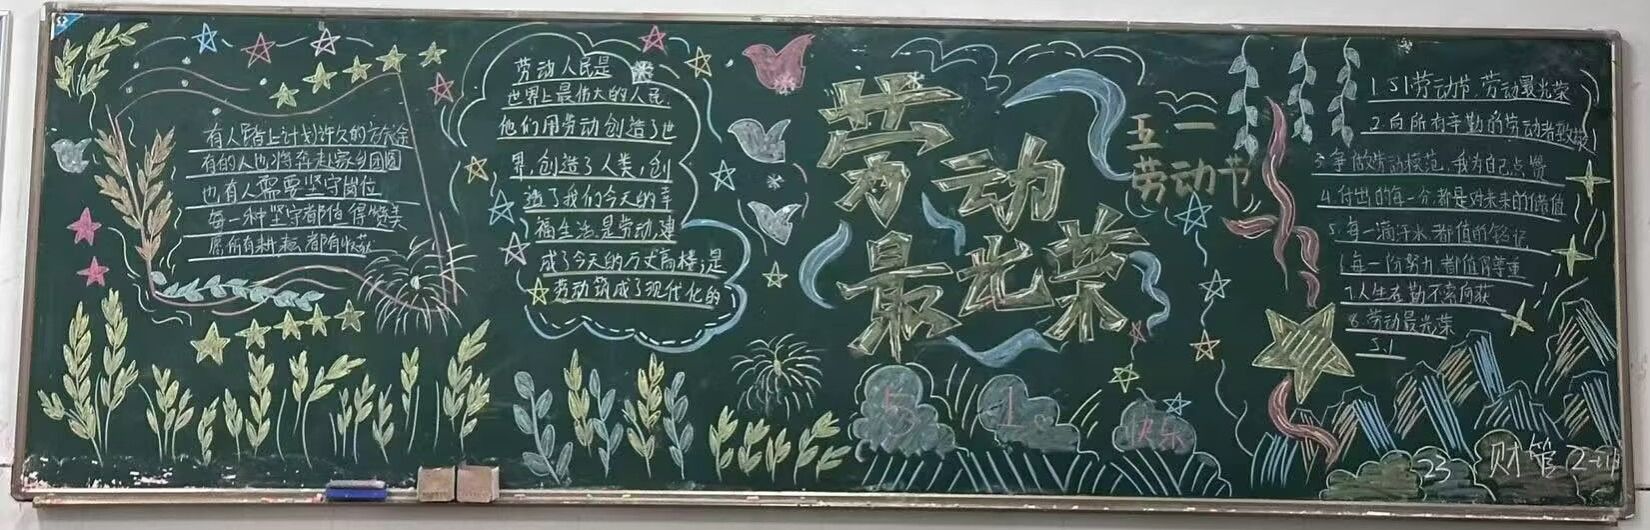 有人踏上计划许久的旅途
有的人也将奔赴家乡团圆
也有人需要坚守岗位
每一种坚守都值得赞美
愿所有耕耘都有收获
劳动人民是
世界上最伟大的人民.
他们用劳动创造了世
界,创造了人类,创
造了我们今天的幸
福生活.是劳动建
成了今天的万丈高楼;是
劳动筑成了现代化的
劳动
最光荣
五一
劳动节
5 1。快乐
1.51劳动节,劳动最光荣
2.向所有辛勤的劳动者致敬
3.争做劳动模范,我为自己点赞
4.付出的每一分,都是对未来的价值
5.每一滴汗水都值的铭记
6.每一份努力都值得尊重
7.人生在勤不索何获
8.劳动最光荣
5.1
23 财管